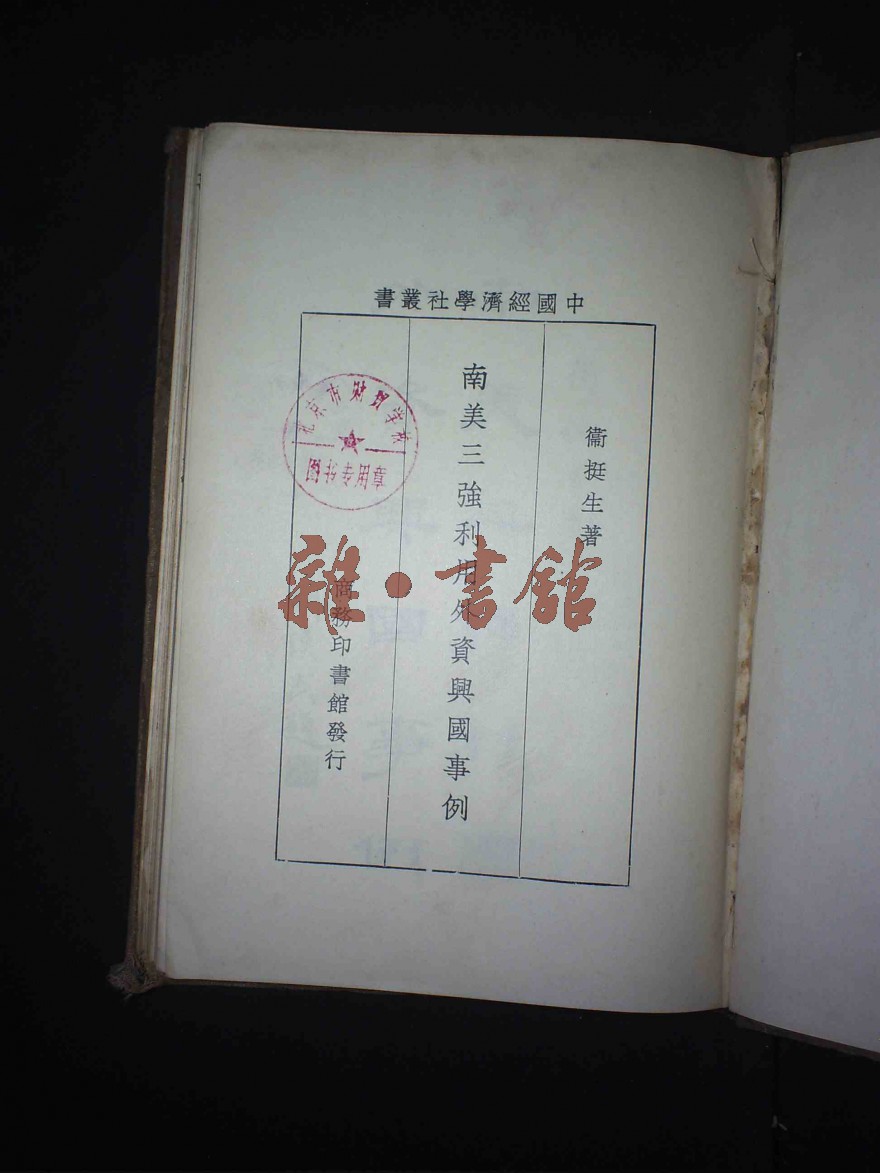 中國經濟學社叢書
衞挺生著
南美三強利用外資興國事例
商務印書館發行
北京市财贸学校
雜·書館